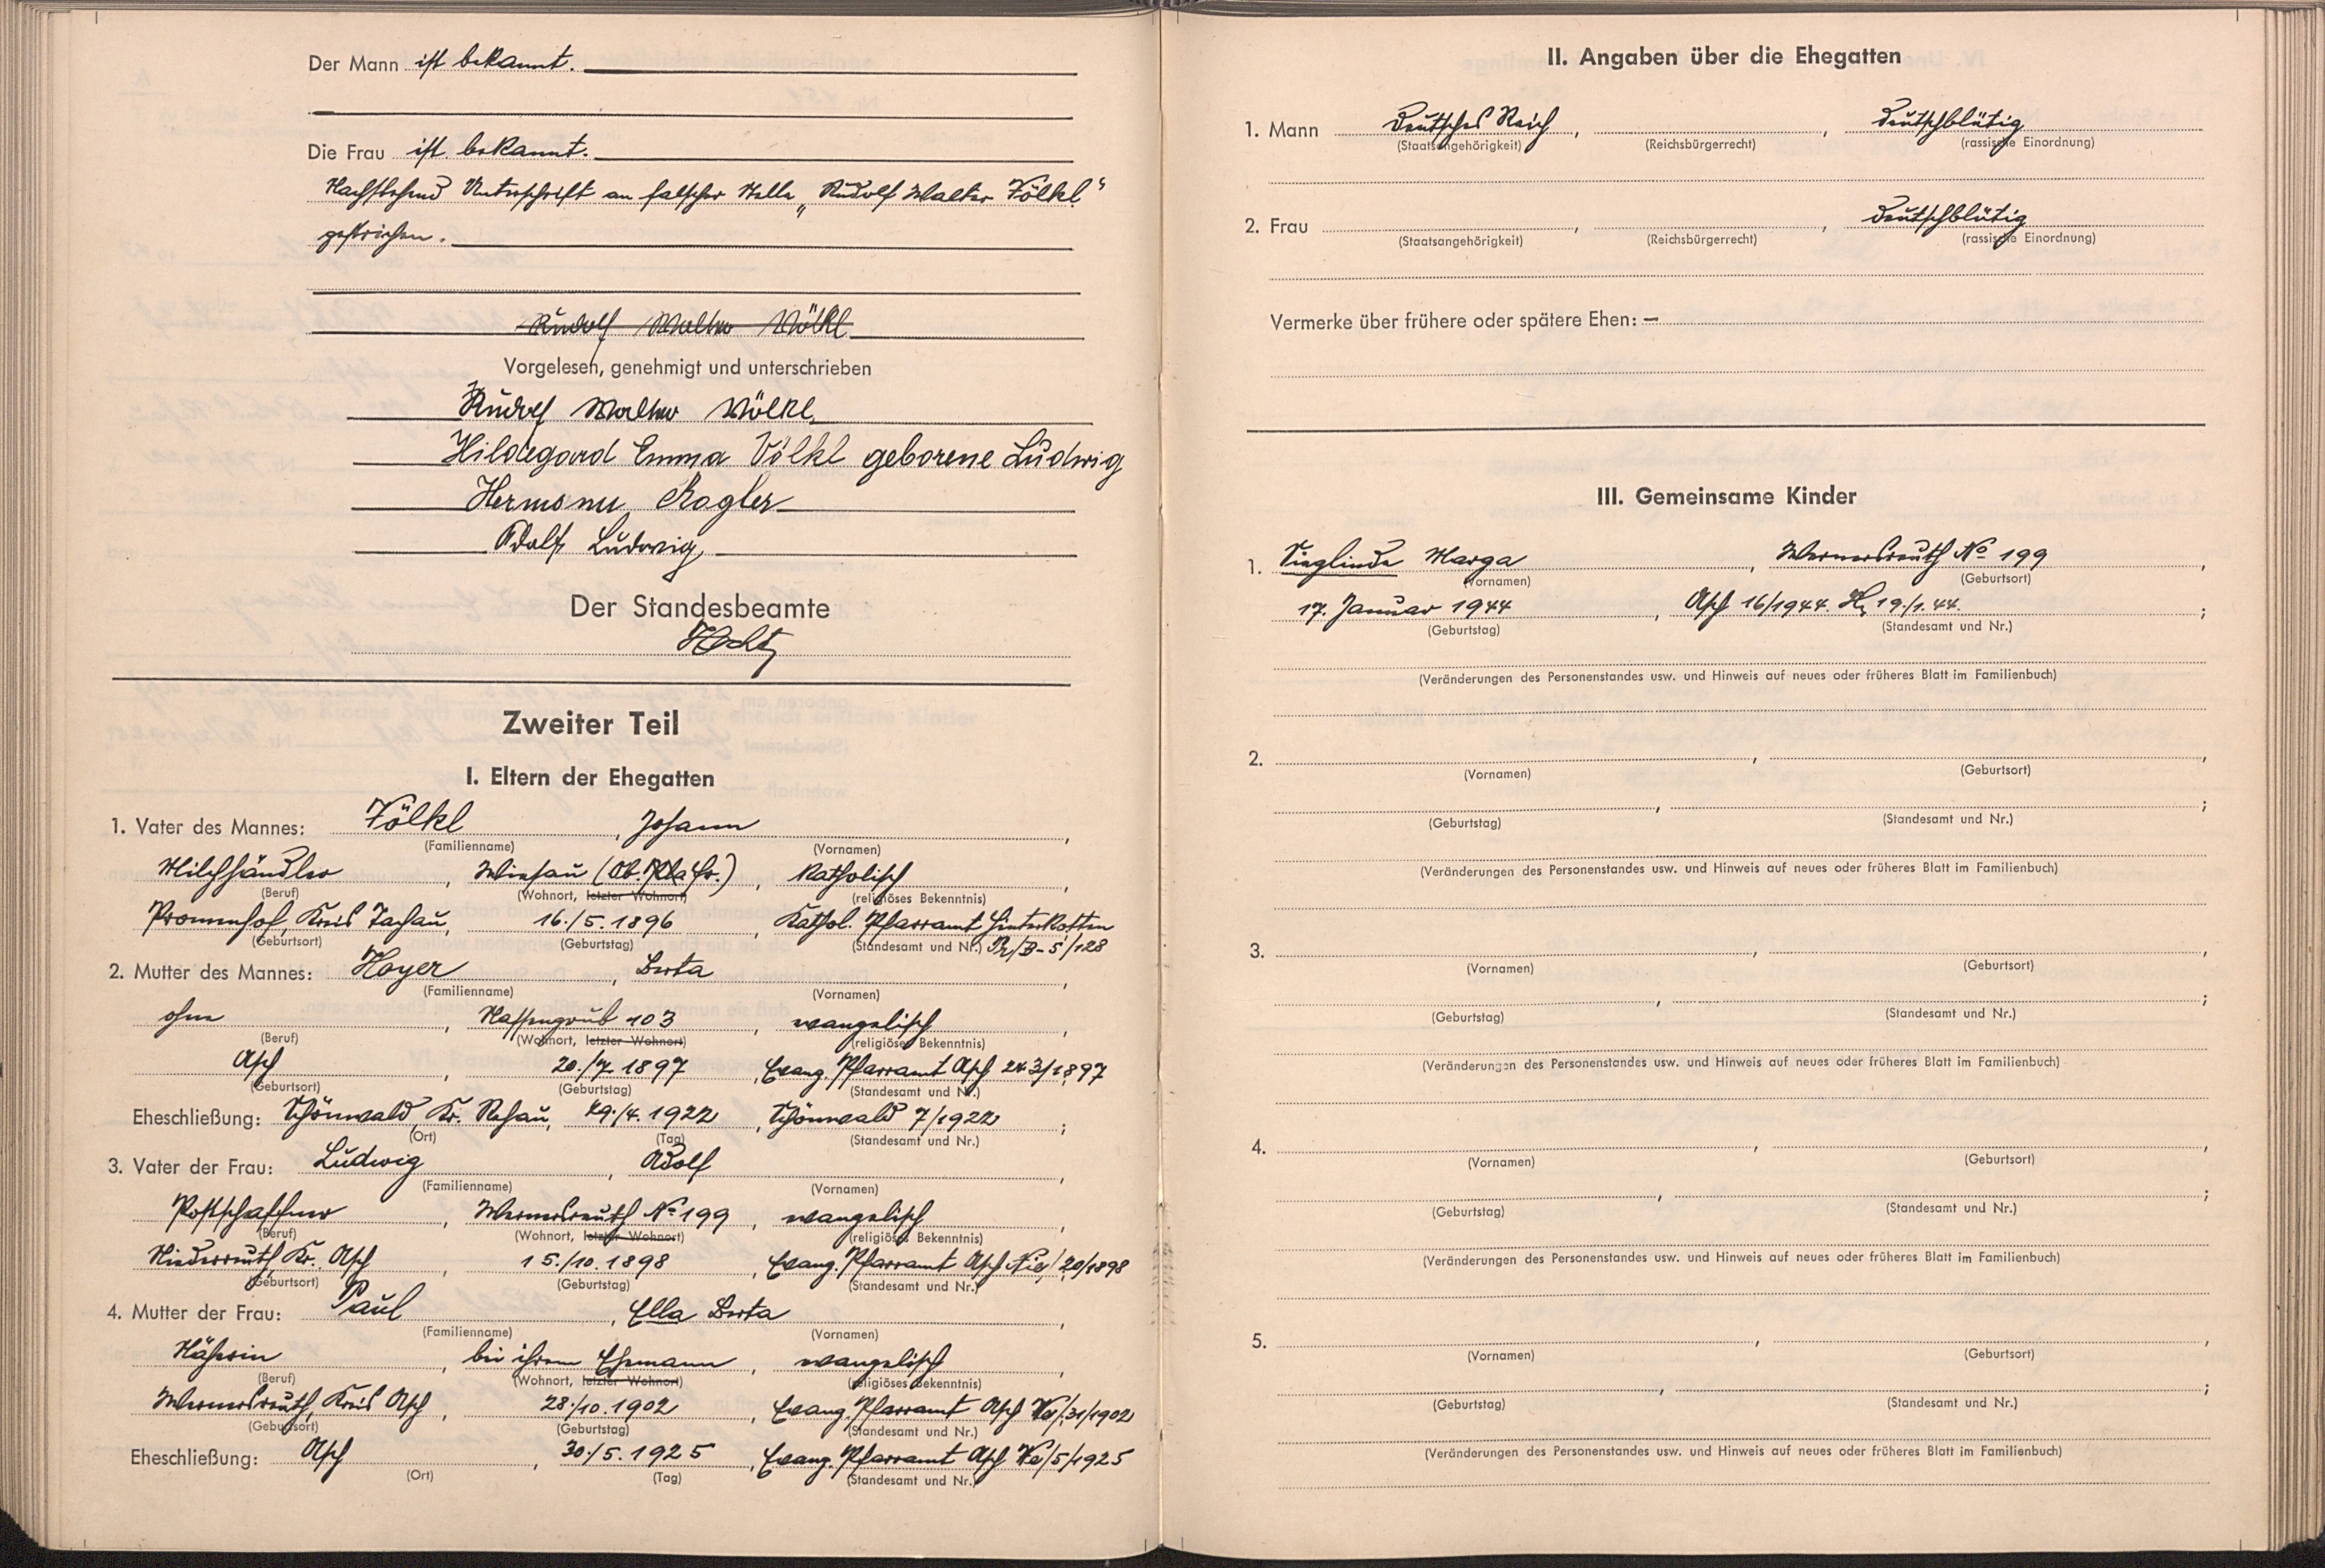 Der Mann ist bekannt.
Die Frau ist bekannt.
Nachstehend Unterschrift an falscher Stelle „Rudolf Walter Völkl“
gestrichen.
Rudolf Walter Völkl
Vorgelesen, genehmigt und unterschrieben
Rudolf Walter Völkl
Hildegard Emma Völkl geborene Ludwig
Hermann Rogler
Adolf Ludwig
Der Standesbeamte
Zweiter Teil
I. Eltern der Ehegatten
1. Vater des Mannes: Völkl, Johann,
(Familienname) (Vornamen)
Milchhändler, Wiesau (Ob. Pfalz), katholisch,
(Beruf) (Wohnort, letzter Wohnort) (religiöses Bekenntnis)
Promenhof, Kreis Tachau, 16./5. 1896, Kathol. Pfarramt Hinterkotten
(Geburtsort) (Geburtstag) (Standesamt und Nr.) Pr/B-5/128
2. Mutter des Mannes: Hoyer, Berta,
(Familienname) (Vornamen)
ohne, Nassengrub 103, evangelisch,
(Beruf) (Wohnort, letzter Wohnort) (religiöses Bekenntnis)
Asch, 20./7. 1897, Evang. Pfarramt Asch 243/1897
(Geburtsort) (Geburtstag) (Standesamt und Nr.)
Eheschließung: Schönwald, Kr. Rehau, 29./4. 1922, Schönwald 7/1922;
(Ort) (Tag) (Standesamt und Nr.)
3. Vater der Frau: Ludwig, Adolf,
(Familienname) (Vornamen)
Postschaffner, Wernersreuth No 199, evangelisch,
(Beruf) (Wohnort, letzter Wohnort) (religiöses Bekenntnis)
Niederreuth, Kr. Asch, 15./10. 1898, Evang. Pfarramt Asch Nie/20/1898
(Geburtsort) (Geburtstag) (Standesamt und Nr.)
4. Mutter der Frau: Paul, Ella Berta,
(Familienname) (Vornamen)
Näherin, bei ihrem Ehemann, evangelisch,
(Beruf) (Wohnort, letzter Wohnort) (religiöses Bekenntnis)
Wernersreuth, Kreis Asch, 28./10. 1902, Evang. Pfarramt Asch We/31/1902
(Geburtsort) (Geburtstag) (Standesamt und Nr.)
Eheschließung: Asch, 30./5. 1925, Evang. Pfarramt Asch We/5/1925
(Ort) (Tag) (Standesamt und Nr.)
II. Angaben über die Ehegatten
1. Mann Deutsches Reich, , deutschblütig
(Staatsangehörigkeit) (Reichsbürgerrecht) (rassische Einordnung)
2. Frau , , deutschblütig
(Staatsangehörigkeit) (Reichsbürgerrecht) (rassische Einordnung)
Vermerke über frühere oder spätere Ehen: —
III. Gemeinsame Kinder
1. Sieglinde Marga, Wernersreuth No 199,
(Vornamen) (Geburtsort)
17. Januar 1944, Asch 16/1944. 19./1. 44.;
(Geburtstag) (Standesamt und Nr.)
(Veränderungen des Personenstandes usw. und Hinweis auf neues oder früheres Blatt im Familienbuch)
2. , ,
(Vornamen) (Geburtsort)
, ;
(Geburtstag) (Standesamt und Nr.)
(Veränderungen des Personenstandes usw. und Hinweis auf neues oder früheres Blatt im Familienbuch)
3. , ,
(Vornamen) (Geburtsort)
, ;
(Geburtstag) (Standesamt und Nr.)
(Veränderungen des Personenstandes usw. und Hinweis auf neues oder früheres Blatt im Familienbuch)
4. , ,
(Vornamen) (Geburtsort)
, ;
(Geburtstag) (Standesamt und Nr.)
(Veränderungen des Personenstandes usw. und Hinweis auf neues oder früheres Blatt im Familienbuch)
5. , ,
(Vornamen) (Geburtsort)
, ;
(Geburtstag) (Standesamt und Nr.)
(Veränderungen des Personenstandes usw. und Hinweis auf neues oder früheres Blatt im Familienbuch)